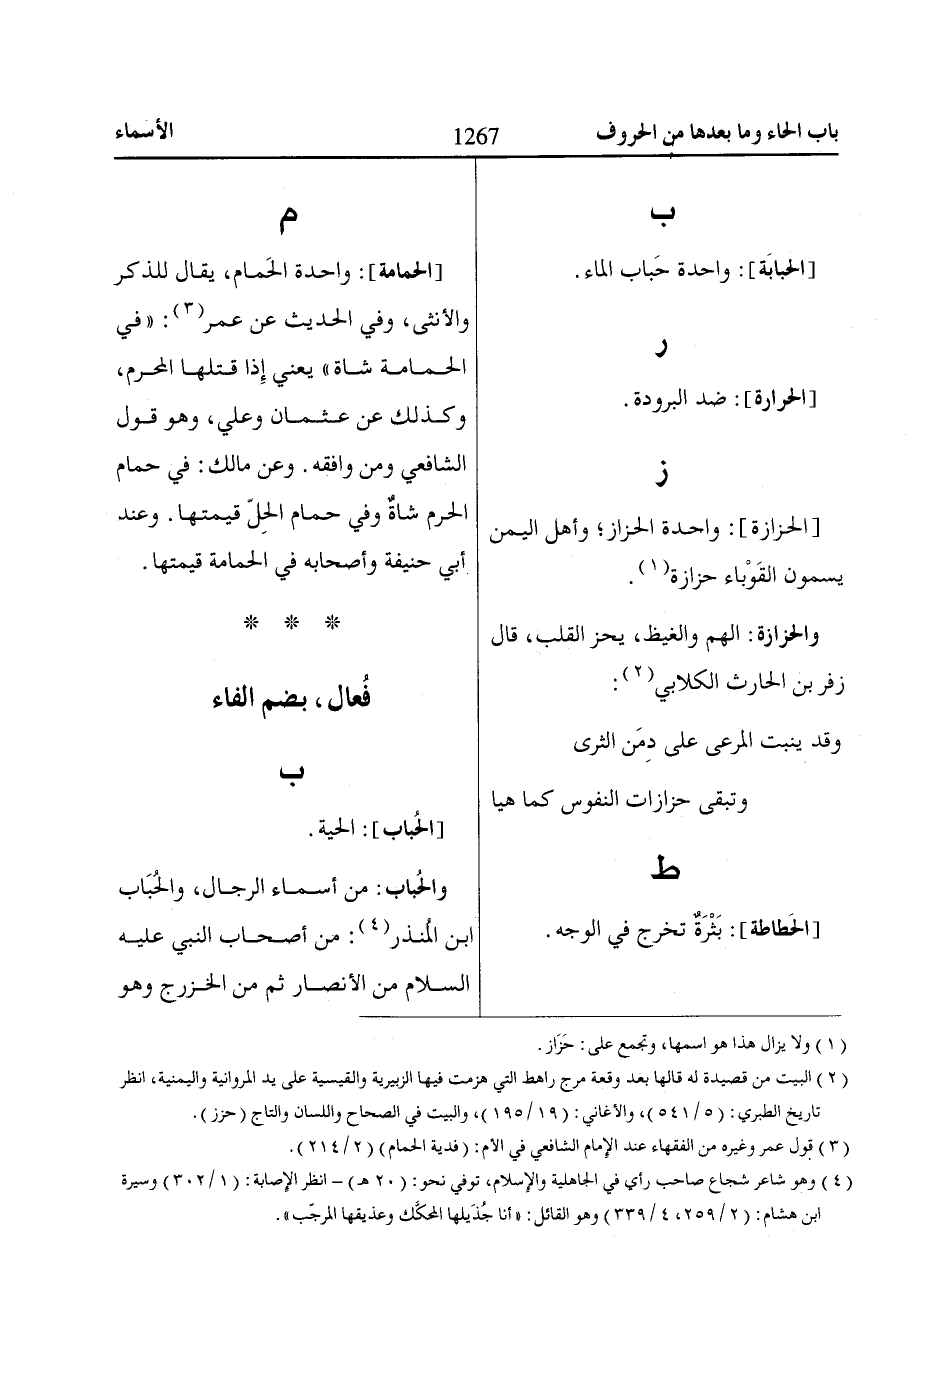 باب الحاء وما بعدها من الحروف
1267
الأسماء
ب
[الحبابَة]: واحدة حَباب الماء.
ر
[الحرارة]: ضد البرودة.
ز
[الحزازة]: واحدة الحزاز؛ وأهل اليمن
يسمون القَوْباء حزازة(١).
والحزازة: الهم والغيظ، يحز القلب، قال
زفر بن الحارث الكلابي(٢):
وقد ينبت المرعى على دِمَن الثرى
وتبقى حزازات النفوس كما هيا
ط
[الحَطاطة]: بَثْرَةٌ تخرج في الوجه.
م
[الحمامة]: واحدة الحَمام، يقال للذكر
والأنثى، وفي الحديث عن عمر(٣): «في
الحمامة شاة» يعني إذا قتلها المحرم،
وكذلك عن عثمان وعلي، وهو قول
الشافعي ومن وافقه. وعن مالك: في حمام
الحرم شاةٌ وفي حمام الحِلّ قيمتها. وعند
أبي حنيفة وأصحابه في الحمامة قيمتها.
* * *
فُعال، بضم الفاء
ب
[الحُباب]: الحية.
والحُباب: من أسماء الرجال، والحُبَاب
ابن المُنذر(٤): من أصحاب النبي عليه
السلام من الأنصار ثم من الخزرج وهو
(١) ولا يزال هذا هو اسمها، وتجمع على: حَزَاز.
(٢) البيت من قصيدة له قالها بعد وقعة مرج راهط التي هزمت فيها الزبيرية والقيسية على يد المروانية واليمنية، انظر
تاريخ الطبري: (٥/٥٤١)، والأغاني: (١٩/١٩٥)، والبيت في الصحاح واللسان والتاج (حزز).
(٣) قول عمر وغيره من الفقهاء عند الإمام الشافعي في الأم: (فدية الحمام) (٢/٢١٤).
(٤) وهو شاعر شجاع صاحب رأي في الجاهلية والإسلام، توفي نحو: (٢٠ هـ) - انظر الإصابة: (١/٣٠٢) وسيرة
ابن هشام: (٢/٢٥٩، ٤/٣٣٩) وهو القائل: «أنا جُذَيلها المحكَّك وعذيقها المرجّب».